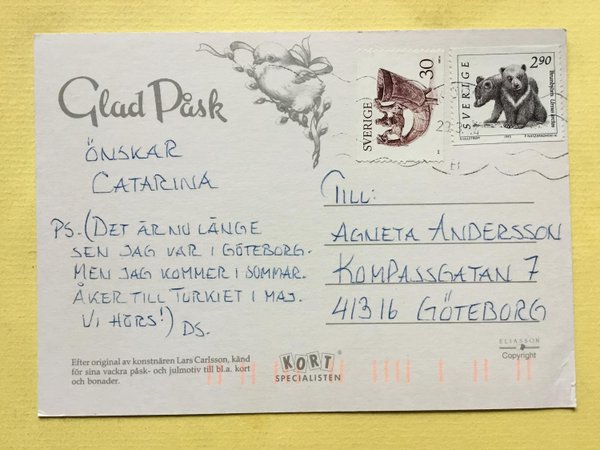 Glad Påsk
ÖNSKAR
CATARINA
PS. (DET ÄR NU LÄNGE
SEN JAG VAR I GÖTEBORG.
MEN JAG KOMMER I SOMMAR.
ÅKER TILL TURKIET I MAJ.
VI HÖRS!) DS.
Efter original av konstnären Lars Carlsson, känd
för sina vackra påsk- och julmotiv till bl.a. kort
och bonader.
KORT
SPECIALISTEN
SVERIGE
30
SVERIGE
2,90
TILL:
AGNETA ANDERSSON
KOMPASSGATAN 7
41316 GÖTEBORG
ELIASSON
Copyright